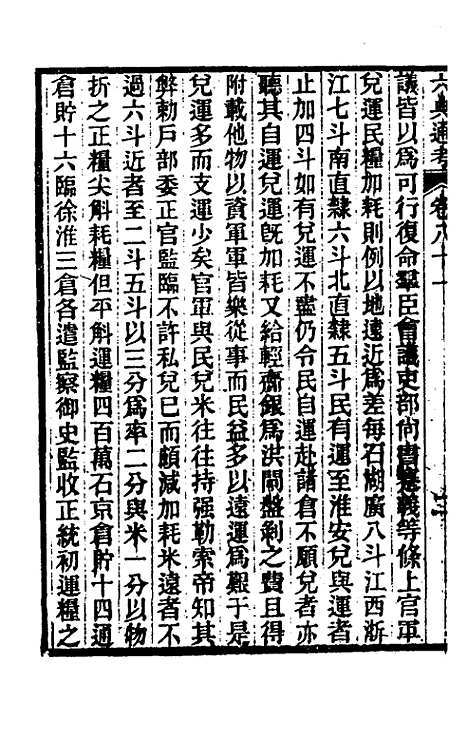 六典通考 卷八十一
議皆以爲可行復命羣臣會議吏部尚書蹇義等條上官軍
兌運民糧加耗則例以地遠近爲差每石湖廣八斗江西浙
江七斗南直隷六斗北直隷五斗民有運至淮安兌與運者
止加四斗如有兌運不盡仍令民自運赴諸倉不願兌者亦
聽其自運兌運旣加耗又給輕齎銀爲洪閘盤剝之費且得
附載他物以資軍軍皆樂從事而民益多以遠運爲艱于是
兌運多而支運少矣官軍與民兌米往往持强勒索帝知其
弊勅戶部委正官監臨不許私兌已而頗減加耗米遠者不
過六斗近者至二斗五斗以三分爲率二分與米一分以物
折之正糧尖斛耗糧但平斛運糧四百萬石京倉貯十四通
倉貯十六臨徐淮三倉各遣監察御史監收正統初運糧之